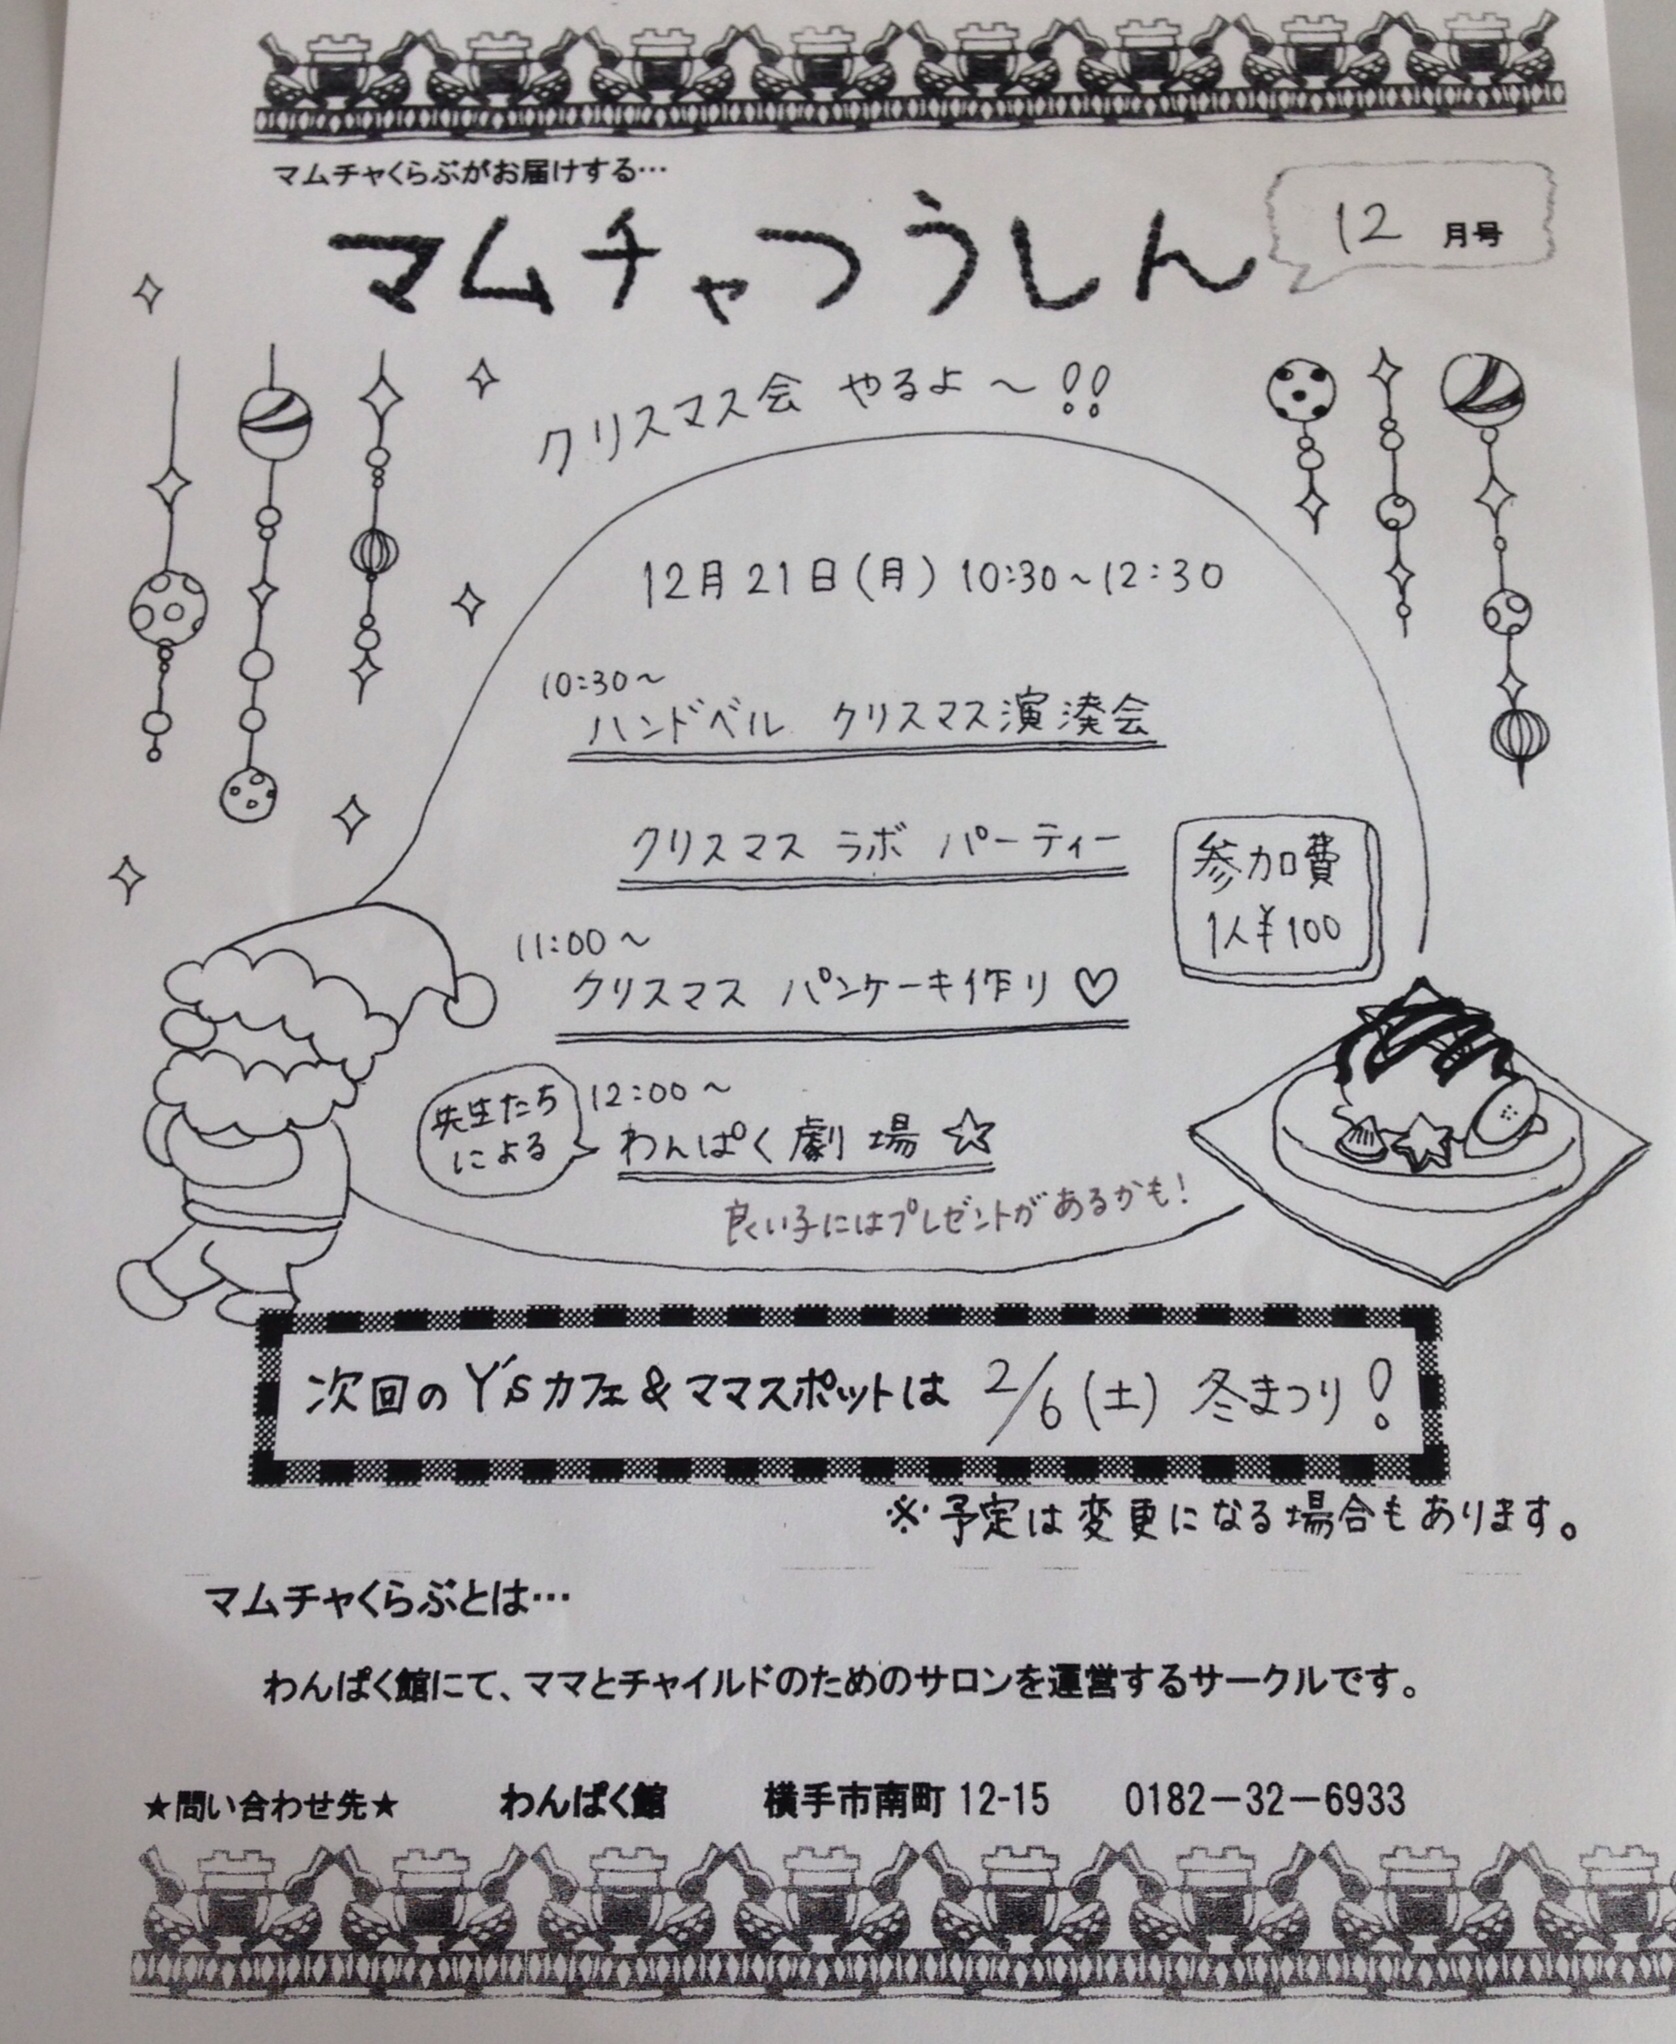 マムチャくらぶがお届けする…
マムチャつうしん
12 月号
クリスマス会 やるよ～!!
12月21日(月) 10:30～12:30
10:30～
ハンドベル クリスマス演湊会
クリスマス ラボ パーティー
参加費
1人¥100
11:00～
クリスマス パンケーキ作り♡
先生たち
による
12:00～
わんぱく劇場☆
良い子にはプレゼントがあるかも!
次回のY'sカフェ&ママスポットは 2/6(土) 冬まつり!
※予定は変更になる場合もあります。
マムチャくらぶとは…
わんぱく館にて、ママとチャイルドのためのサロンを運営するサークルです。
★問い合わせ先★ わんぱく館 横手市南町 12-15 0182－32－6933